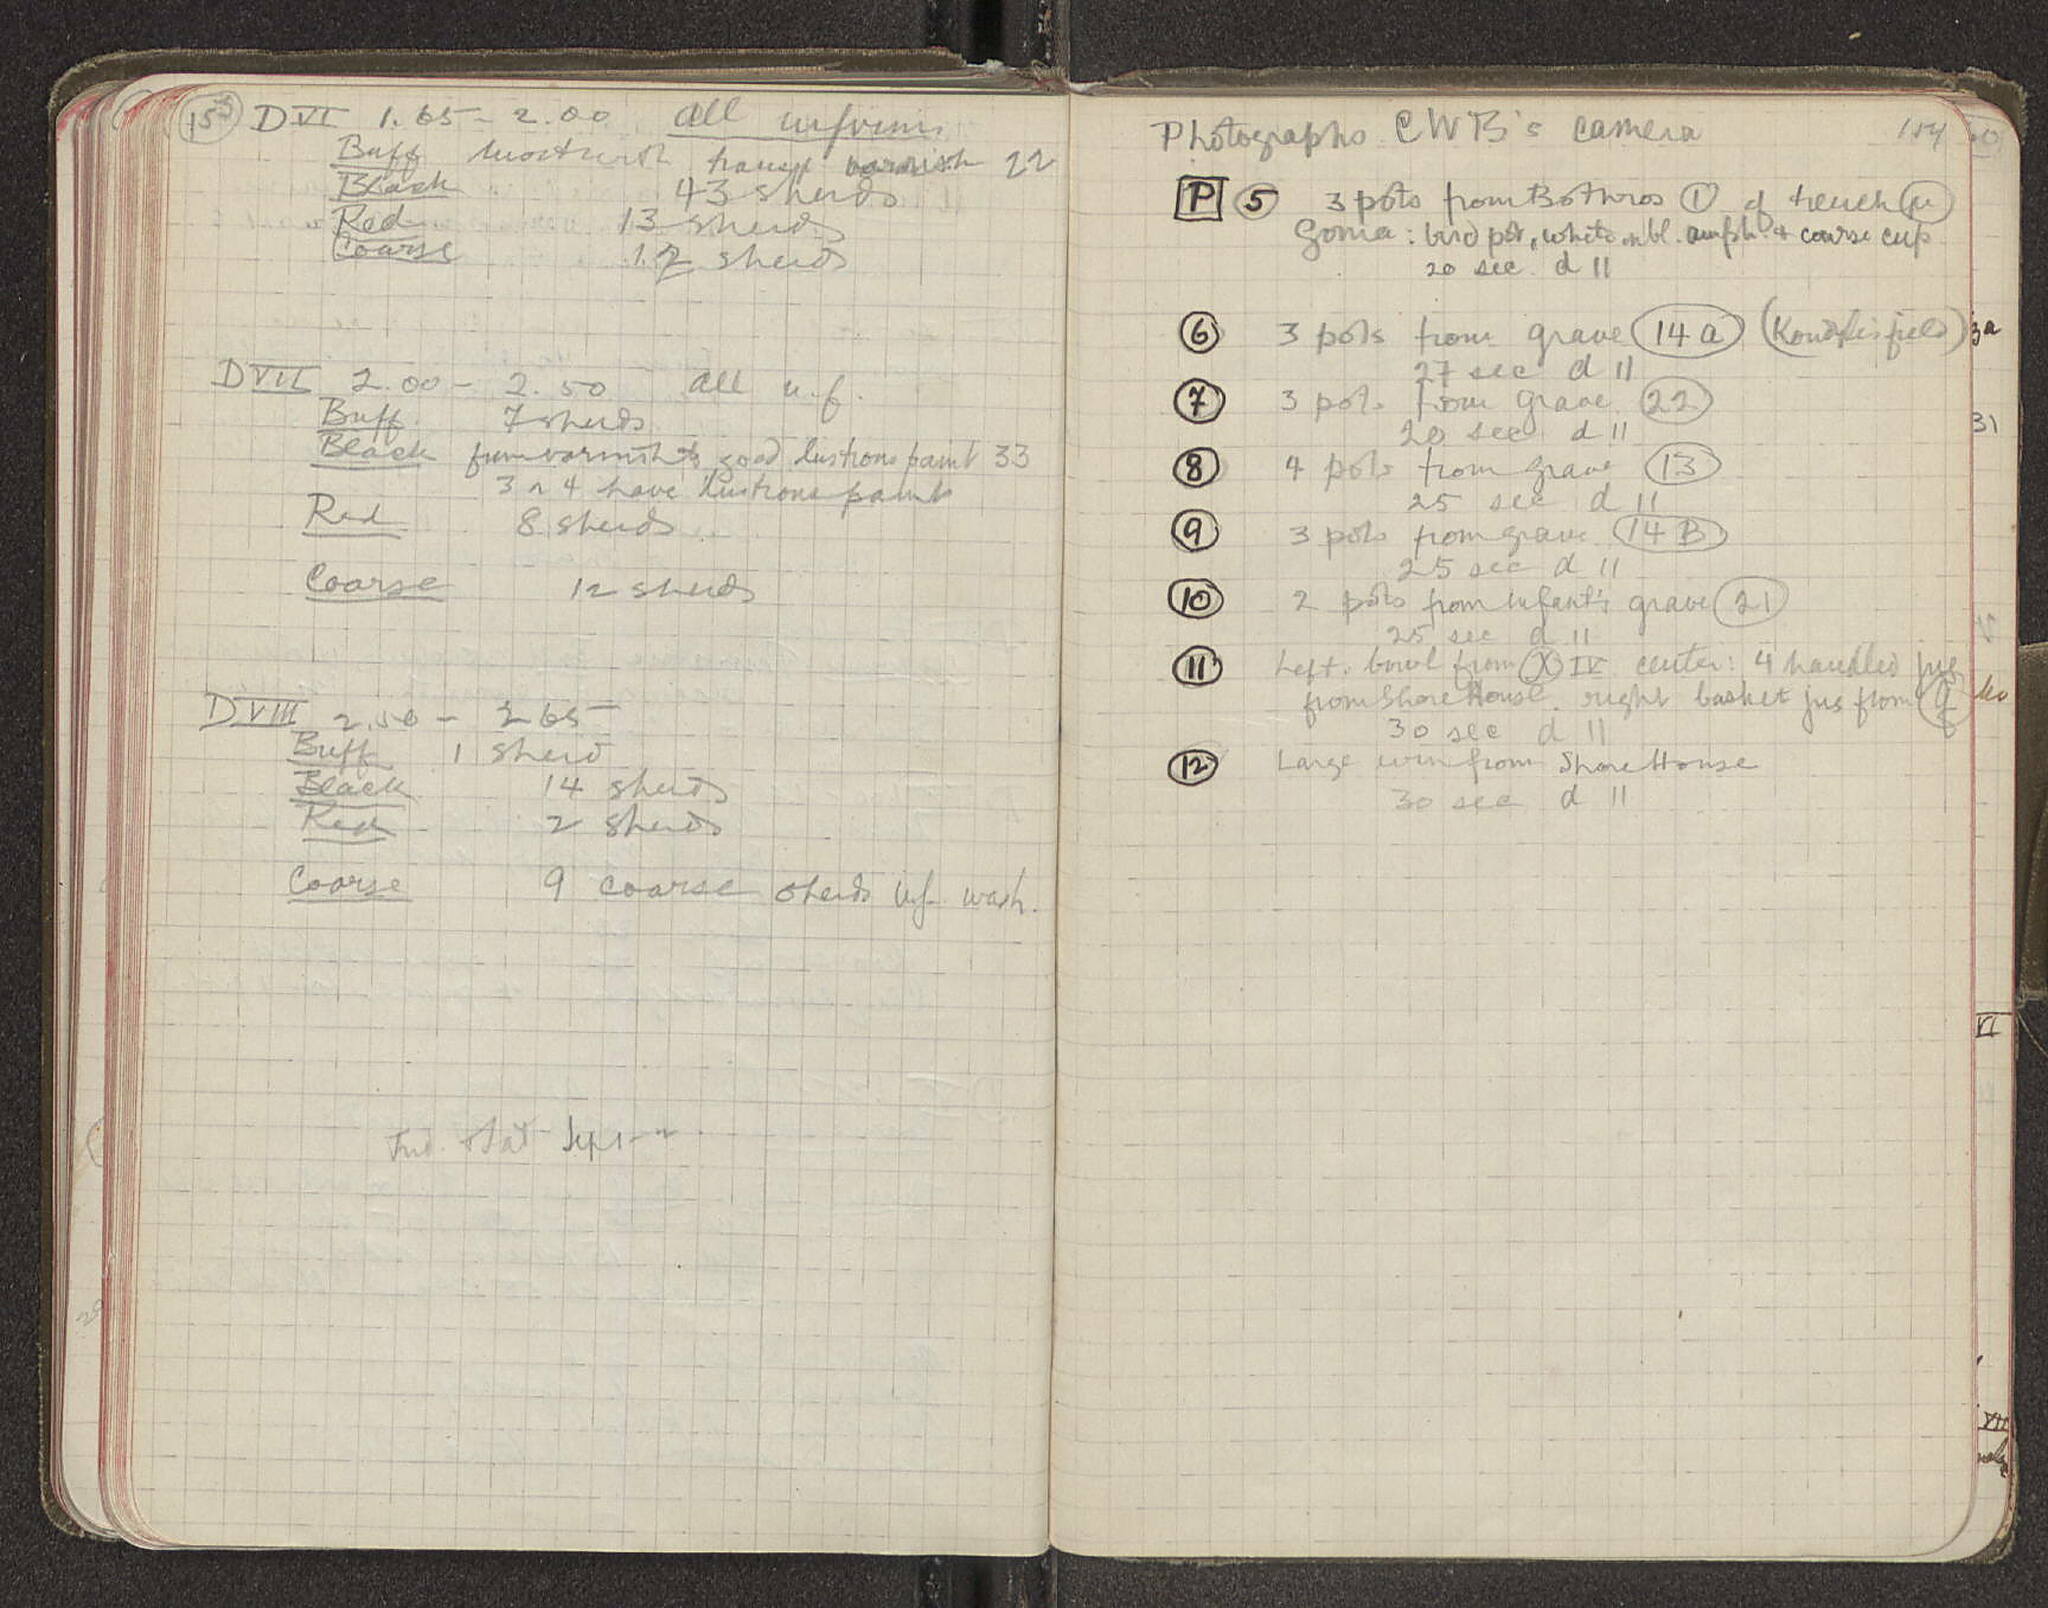 153 D VI 1.65 - 2.00 All uniform
Buff Most with transp varnish 22
Black 43 sherds
Red 13 sherds
Coarse 12 sherds
D VII 2.00 - 2.50 All u.f.
Buff 7 sherds
Black from varnish to good lustrous paint 33
3 or 4 have lustrous paint
Red 8 sherds
Coarse 12 sherds
D VIII 2.50 - 2.65
Buff 1 sherd
Black 14 sherds
Red 2 sherds
Coarse 9 coarse sherds u.f. wash.
Photographs CWB's camera 154
P 5 3 pots from Bothros 1 of trench μ
Gonia: bird pot, white on bl. amph. + coarse cup
20 sec. d 11
6 3 pots from grave 14a
27 sec d 11
7 3 pots from grave 22
20 sec d 11
8 4 pots from grave 13
25 sec d 11
9 3 pots from grave 14 B
25 sec d 11
10 2 pots from Infant's grave 21
25 sec d 11
11 Left. bowl from X IV center: 4 handled jug
from Shore House. right basket jug from
30 sec d 11
12 Large urn from Shore House
30 sec d 11
3a
31
VI
VII